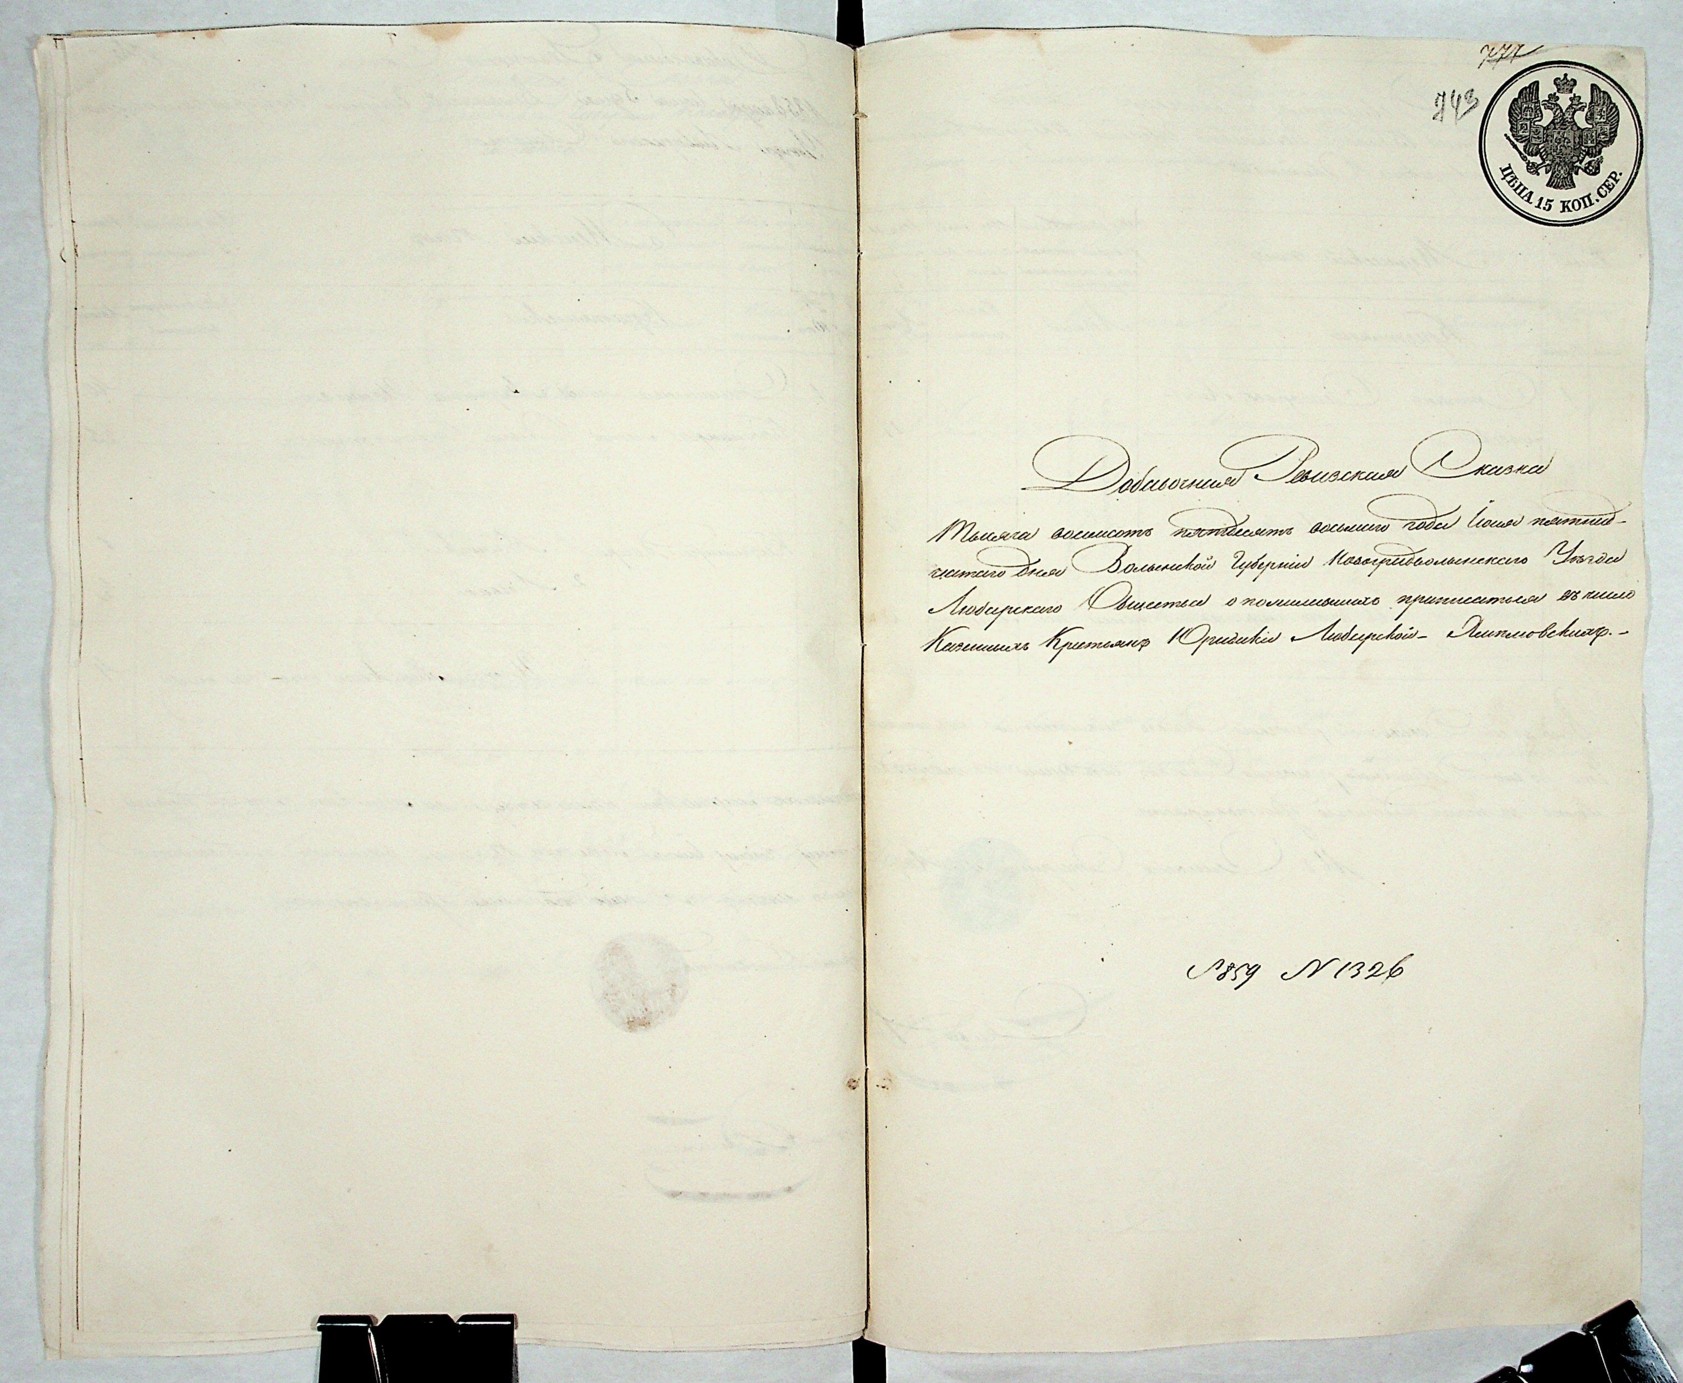 777
743
ЦѢНА 15 КОП. СЕР.
Добавочная Ревизская Сказка
Тысяча восемсотъ пятдесятъ восьмаго года Іюля пятнад-
цатаго дня Волынской Губерніи Новоградволынскаго Уѣзда
Любарскаго Общества о помѣщ приписаться въ число
Казенныхъ Крестьянъ Юридики Любарской-
1859 N 1326